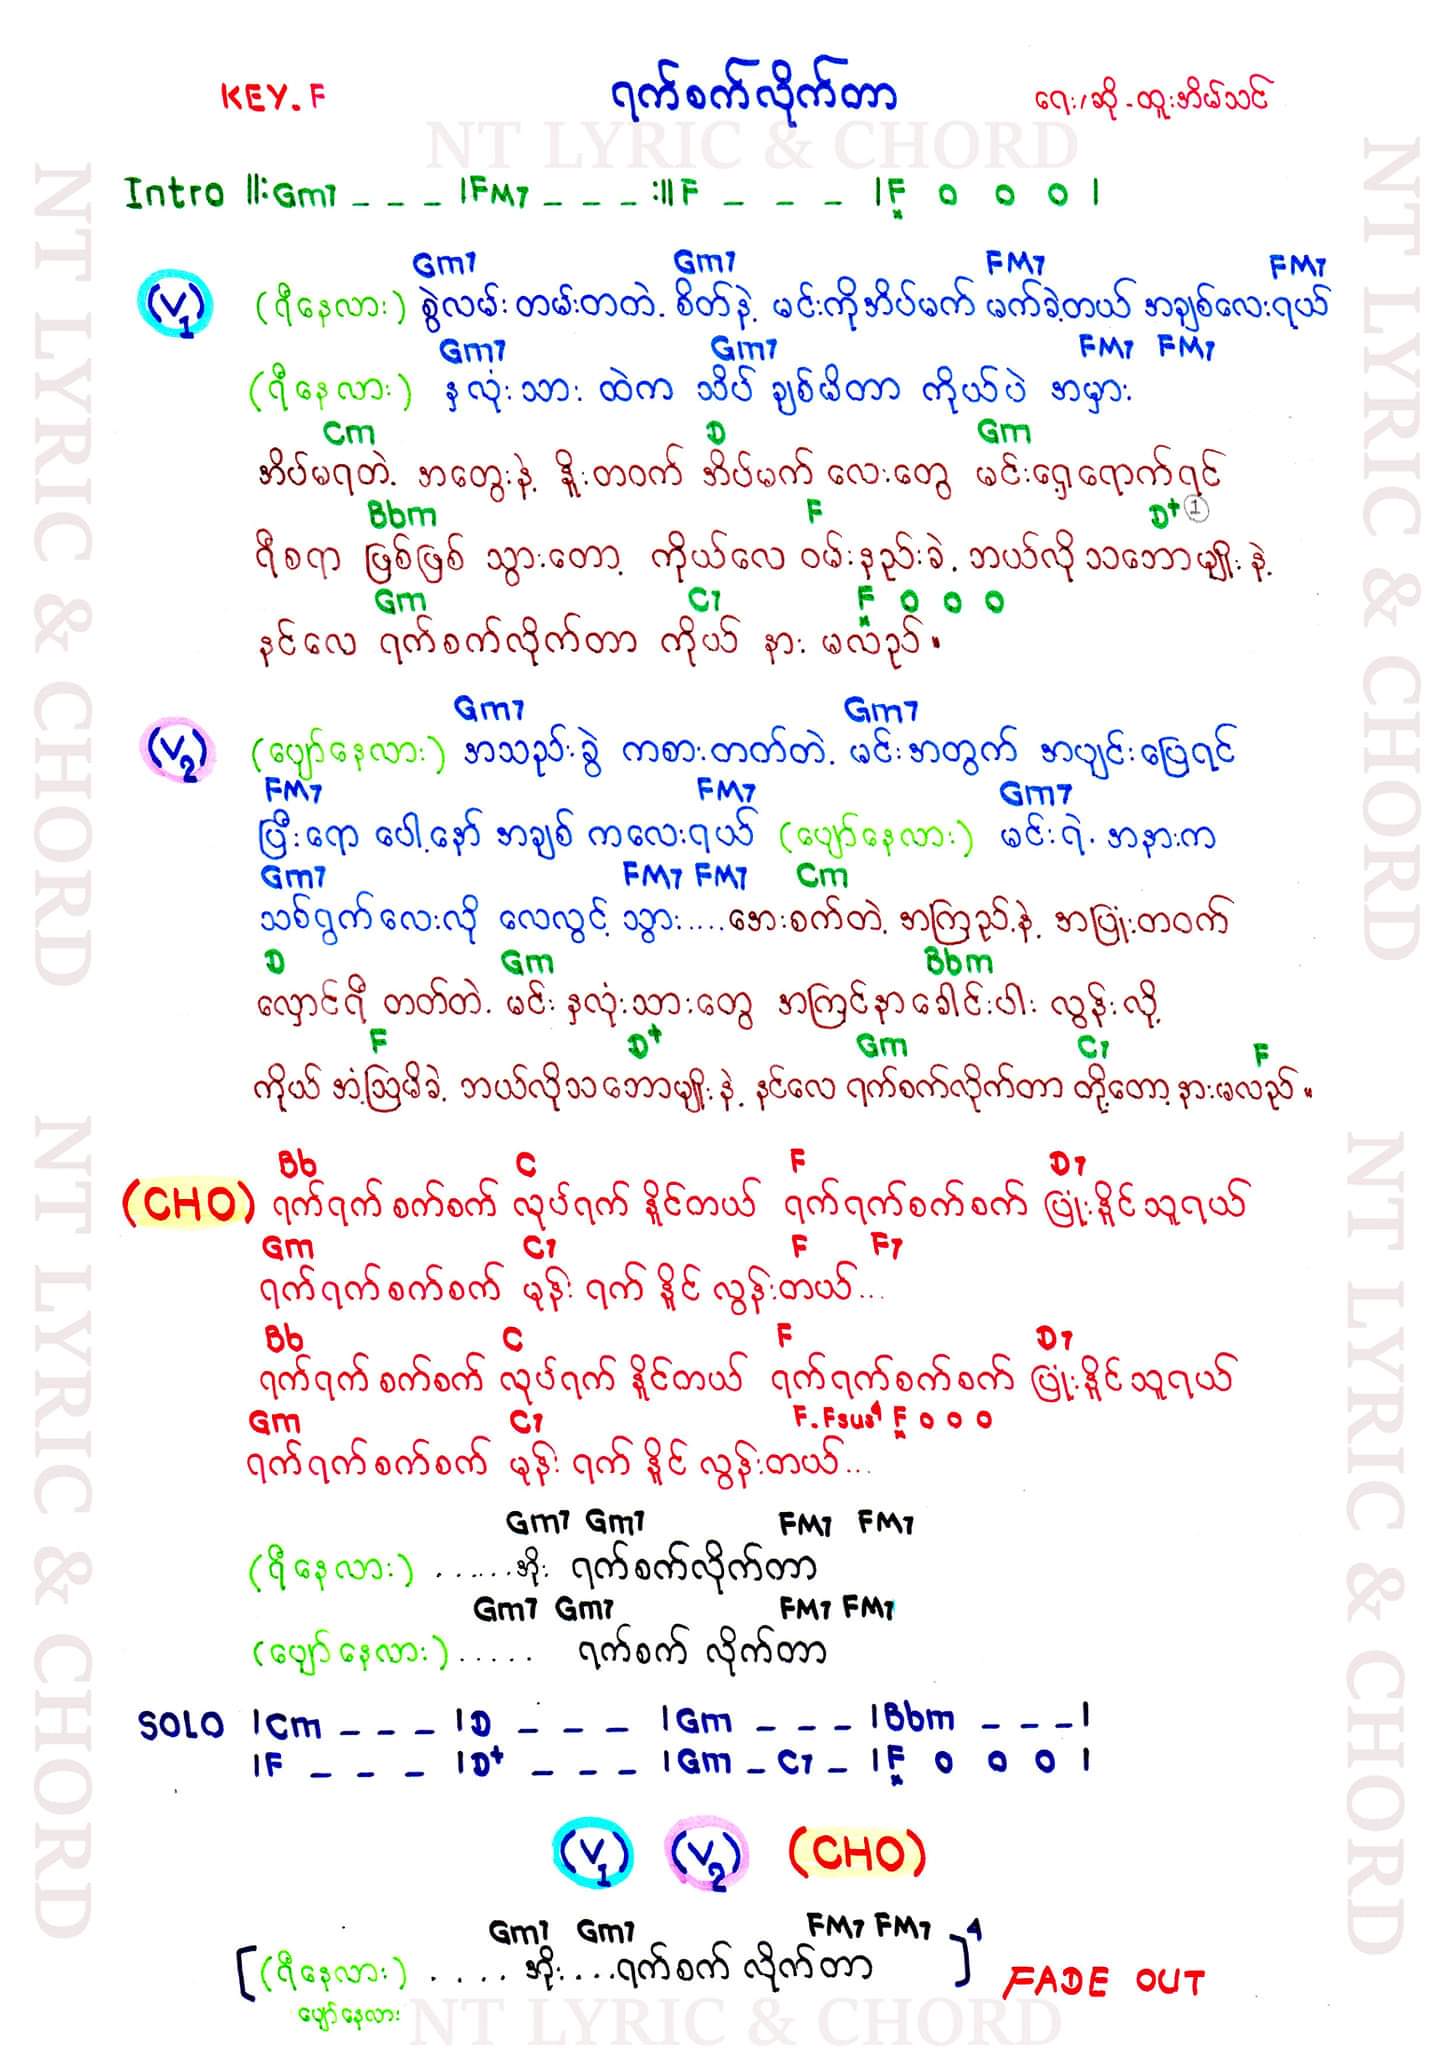 KEY.F ရက်စက်လိုက်တာ ရေး/ဆို-ထူးအိမ်သင်
NT LYRIC & CHORD
Intro ||:Gm7 _ _ _ |FM7 _ _ _ :||F _ _ _ |F 0 0 0 |
Gm7 Gm7 FM7 FM7
(V1) (ရီနေလား) စွဲလမ်း တမ်းတတဲ့ စိတ်နဲ့ မင်းကိုအိပ်မက် မက်ခဲ့တယ် အချစ်လေးရယ်
Gm7 Gm7 FM7 FM7
(ရီနေလား) နှလုံးသား ထဲက သိပ် ချစ်မိတာ ကိုယ်ပဲ အမှား
Cm D Gm
အိပ်မရတဲ့ အတွေးနဲ့ နိုးတဝက် အိပ်မက် လေးတွေ မင်းရှေ့ရောက်ရင်
Bbm F D+ 1
ရီစရာ ဖြစ်ဖြစ် သွားတော့ ကိုယ်လေ ဝမ်းနည်းခဲ့ ဘယ်လိုသဘောမျိုးနဲ့
Gm C7 F 0 0 0
နင်လေ ရက်စက်လိုက်တာ ကိုယ် နား မလည်။
Gm7 Gm7
(V2) (ပျော်နေလား) အသည်းခွဲ ကစားတတ်တဲ့ မင်းအတွက် အပျင်းပြေရင်
FM7 FM7 Gm7
ပြီးရော ပေါ့နော် အချစ် ကလေးရယ် (ပျော်နေလား) မင်းရဲ့ အနားက
Gm7 FM7 FM7 Cm
သစ်ရွက်လေးလို လေလွင့် သွား....အေးစက်တဲ့ အကြည့်နဲ့ အပြုံးတဝက်
D Gm Bbm
လှောင်ရီ တတ်တဲ့ မင်း နှလုံးသားတွေ အကြင်နာခေါင်းပါး လွန်းလို့
F D+ Gm C7 F
ကိုယ် အံ့ဩမိခဲ့ ဘယ်လိုသဘောမျိုးနဲ့ နင်လေ ရက်စက်လိုက်တာ တို့တော့ နားမလည်။
Bb C F D7
(CHO) ရက်ရက်စက်စက် လုပ်ရက် နိုင်တယ် ရက်ရက်စက်စက် ပြုံးနိုင်သူရယ်
Gm C7 F F7
ရက်ရက်စက်စက် မုန်း ရက် နိုင် လွန်းတယ်...
Bb C F D7
ရက်ရက်စက်စက် လုပ်ရက် နိုင်တယ် ရက်ရက်စက်စက် ပြုံးနိုင်သူရယ်
Gm C7 F.Fsus4 F 0 0 0
ရက်ရက်စက်စက် မုန်း ရက် နိုင် လွန်းတယ်...
Gm7 Gm7 FM7 FM7
(ရီနေလား) ......အိုး ရက်စက်လိုက်တာ
Gm7 Gm7 FM7 FM7
(ပျော်နေလား)..... ရက်စက် လိုက်တာ
SOLO |Cm _ _ _ |D _ _ _ |Gm _ _ _ |Bbm _ _ _|
|F _ _ _ |D+ _ _ _ |Gm _ C7 _ |F 0 0 0 |
(V1) (V2) (CHO)
Gm7 Gm7 FM7 FM7
[(ရီနေလား) ....အိုး....ရက်စက် လိုက်တာ ]4 FADE OUT
ပျော်နေလား
NT LYRIC & CHORD
NT LYRIC & CHORD
NT LYRIC & CHORD
NT LYRIC & CHORD
NT LYRIC & CHORD